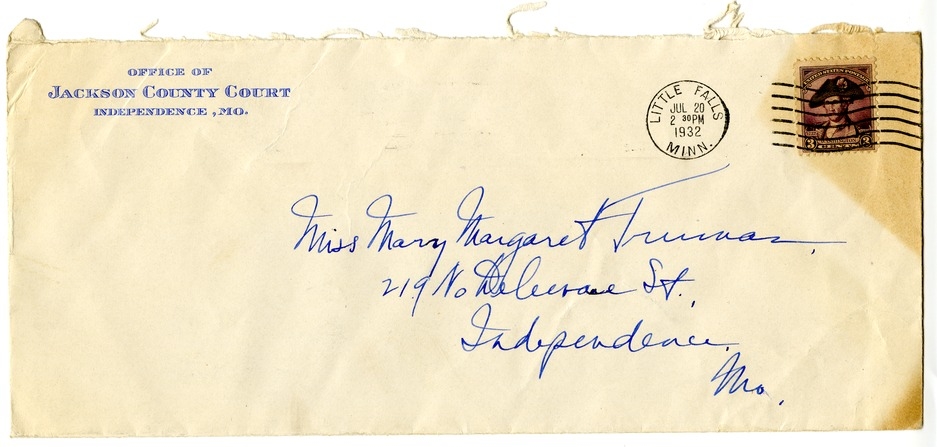 OFFICE OF
JACKSON COUNTY COURT
INDEPENDENCE, MO.
LITTLE FALLS
JUL 20
2 30PM
1932
MINN.
UNITED STATES POSTAGE
3 WASHINGTON 3
CENTS
Miss Mary Margaret Truman,
219 No Deleware St.,
Independence,
Mo.